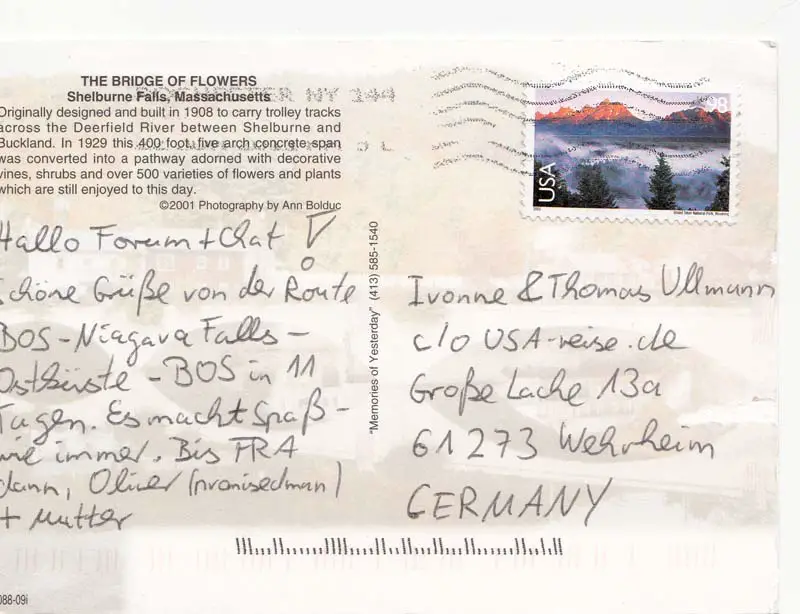 THE BRIDGE OF FLOWERS
Shelburne Falls, Massachusetts
Originally designed and built in 1908 to carry trolley tracks
across the Deerfield River between Shelburne and
Buckland. In 1929 this 400 foot, five arch concrete span
was converted into a pathway adorned with decorative
vines, shrubs and over 500 varieties of flowers and plants
which are still enjoyed to this day.
©2001 Photography by Ann Bolduc
ROCHESTER NY 144
98
USA
Grand Teton National Park, Wyoming
Hallo Forum + Chat !
Schöne Grüße von der Route
BOS - Niagara Falls -
Ostküste - BOS in 11
Tagen. Es macht Spaß -
wie immer. Bis FRA
dann, Oliver (promisedman)
+ Mutter
"Memories of Yesterday" (413) 585-1540
Ivonne & Thomas Ullmann
c/o USA-reise.de
Große Lache 13a
61273 Wehrheim
GERMANY
088-09i